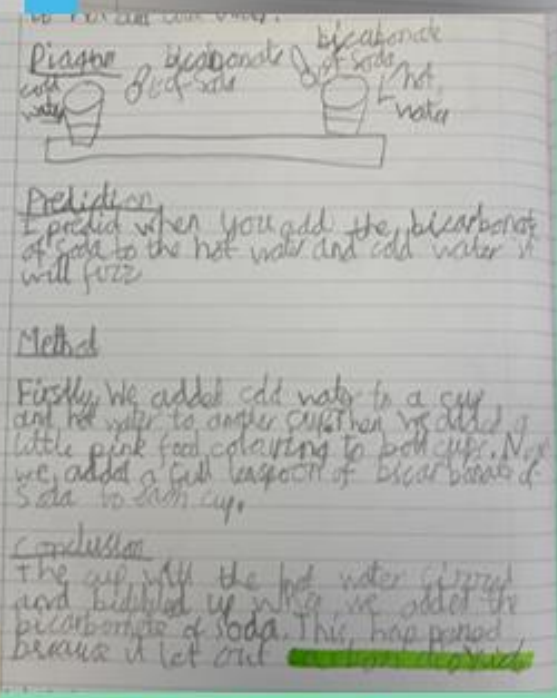 to hot and cold water.
Diagne
bicabonate
of soda
cold
water
bicabonate
of soda
hot
water
Prediction
I predid when you add the bicarbonate
of soda to the hot water and cold water it
will fuzz
Method
Firstly, We added cold water to a cup
and hot water to another cup. Then we added a
little pink food colouring to both cups. Next
we added a full teaspoon of bicarbonate of
Soda to each cup.
Conclusion
The cup with the hot water fizzed
and bubbled up when we added the
bicarbonate of soda. This happened
because it let out carbon dioxide